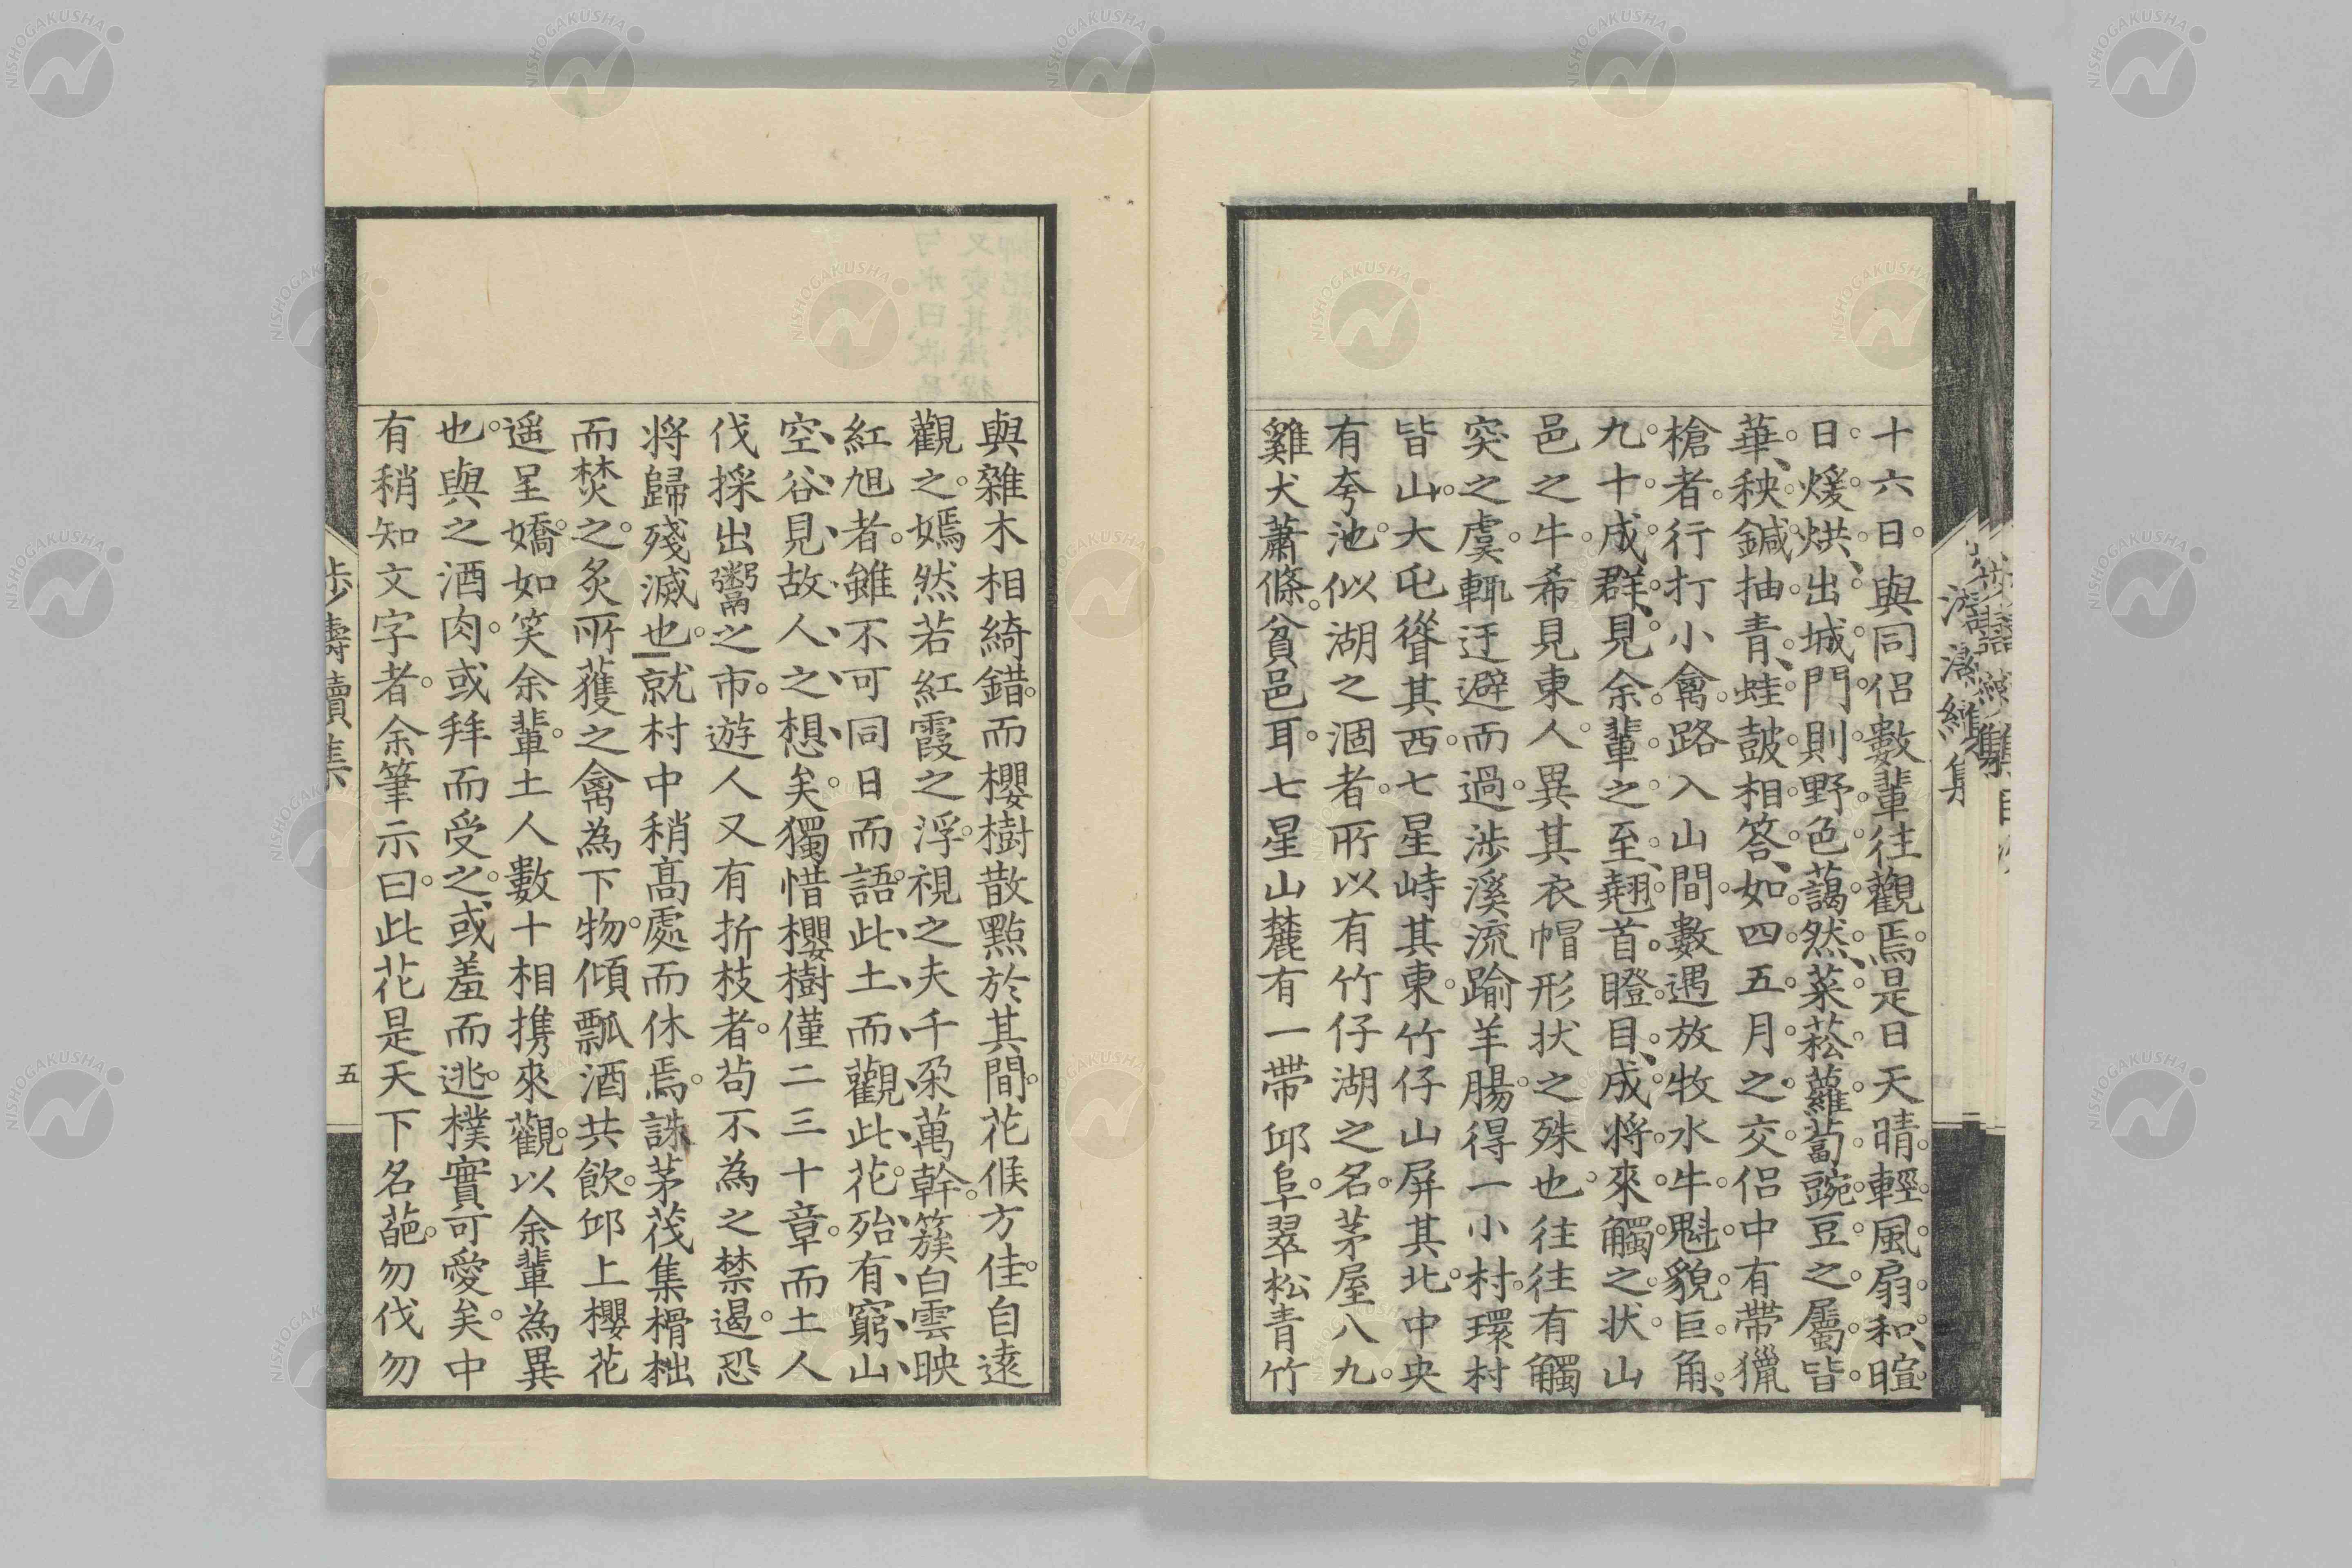 十六日與同侶數輩往觀焉是日天晴輕風扇和暄
日煖烘出城門則野色藹然菜菘蘿蔔豌豆之屬皆
華秧鍼抽青蛙鼓相答如四五月之交侶中有帶獵
槍者行打小禽路入山間數遇放牧水牛魁貌巨角
九十成群見余輩之至翹首瞪目成將來觸之狀山
邑之牛希見東人異其衣帽形狀之殊也往往有觸
突之虞輒迂避而過涉溪流踰羊腸得一小村環村
皆山大屯聳其西七星峙其東竹仔山屏其北中央
有夸池似湖之涸者所以有竹仔湖之名茅屋八九
雞犬蕭條貧邑耳七星山麓有一帶邱阜翠松青竹
與雜木相綺錯而櫻樹散點於其間花候方佳自遠
觀之嫣然若紅霞之浮視之夫千朶萬幹簇白雲映
紅旭者雖不可同日而語此土而觀此花殆有窮山
空谷見故人之想矣獨惜櫻樹僅二三十章而土人
伐採出鬻之市遊人又有折枝者苟不為之禁遏恐
將歸殘滅也就村中稍高處而休焉誅茅茷集榾柮
而焚之炙所獲之禽為下物傾瓢酒共飲邱上櫻花
遥呈嬌如笑余輩土人數十相携來觀以余輩為異
也與之酒肉或拜而受之或羞而逃樸實可愛矣中
有稍知文字者余筆示曰此花是天下名葩勿伐勿
五